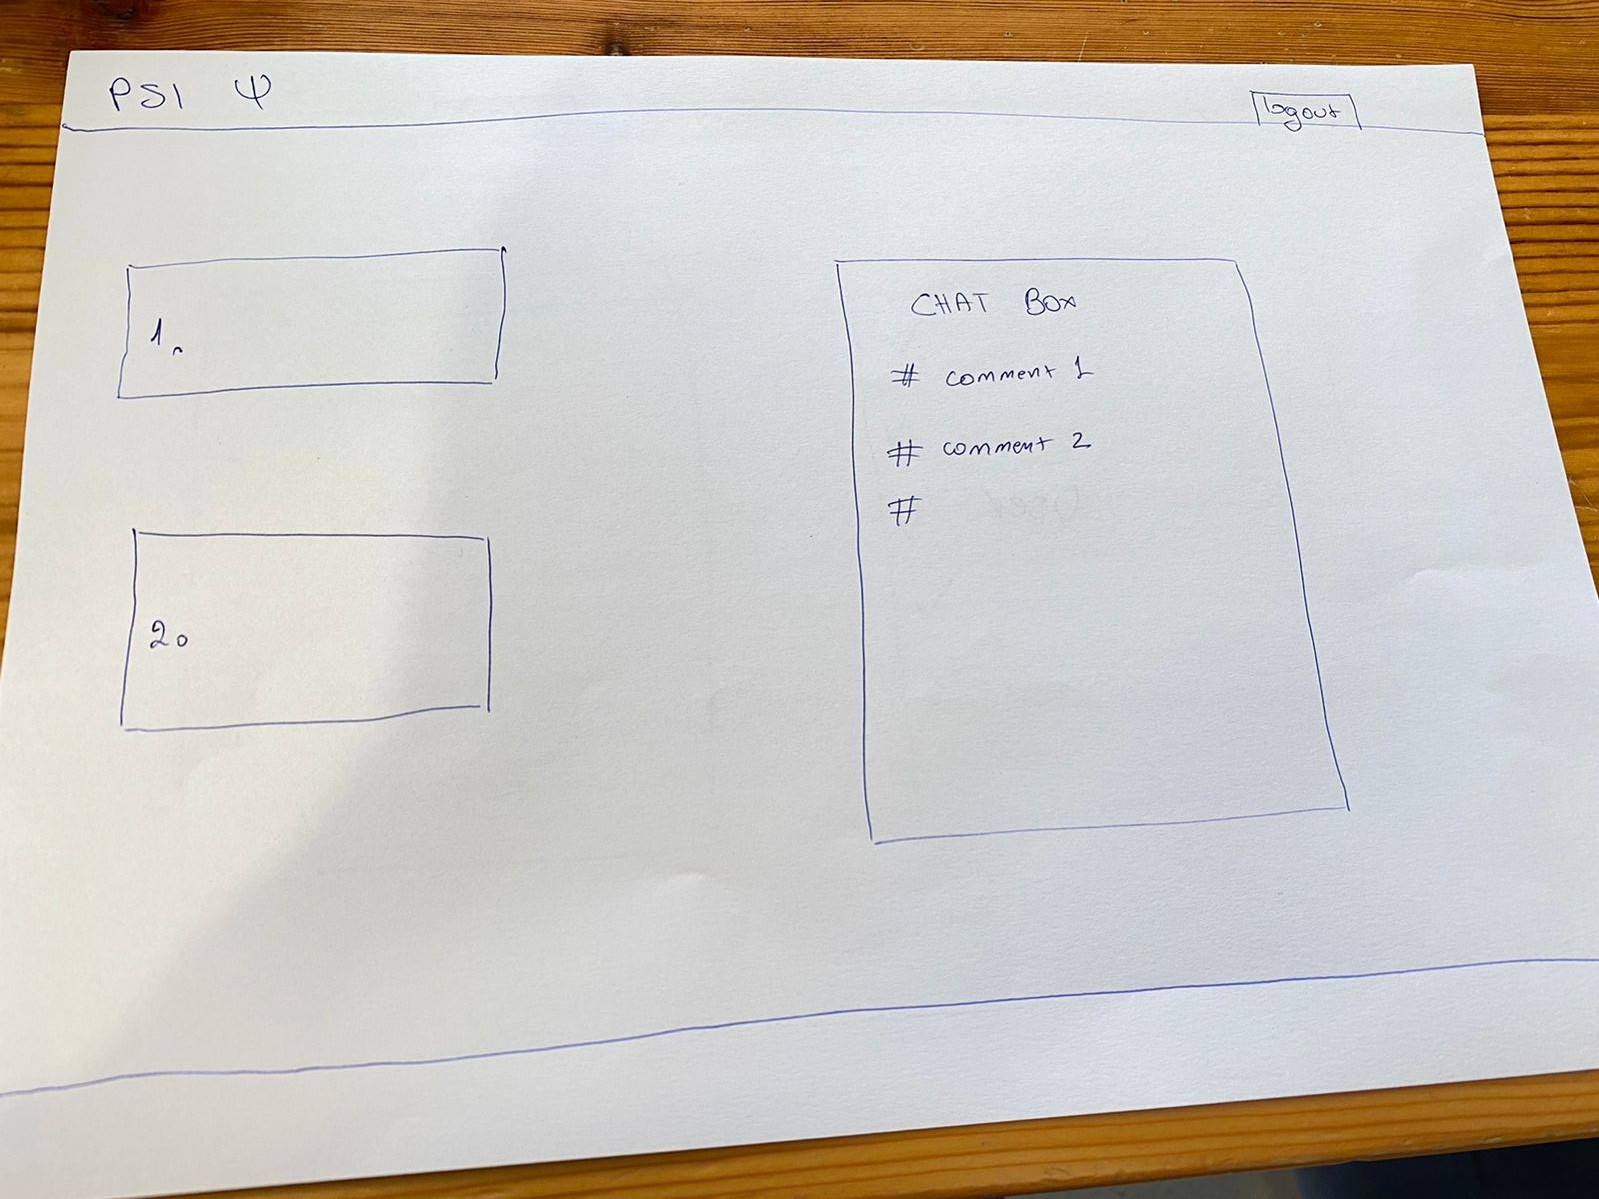 PSI Ψ
logout
1.
2.
CHAT BOX
# comment 1
# comment 2
#